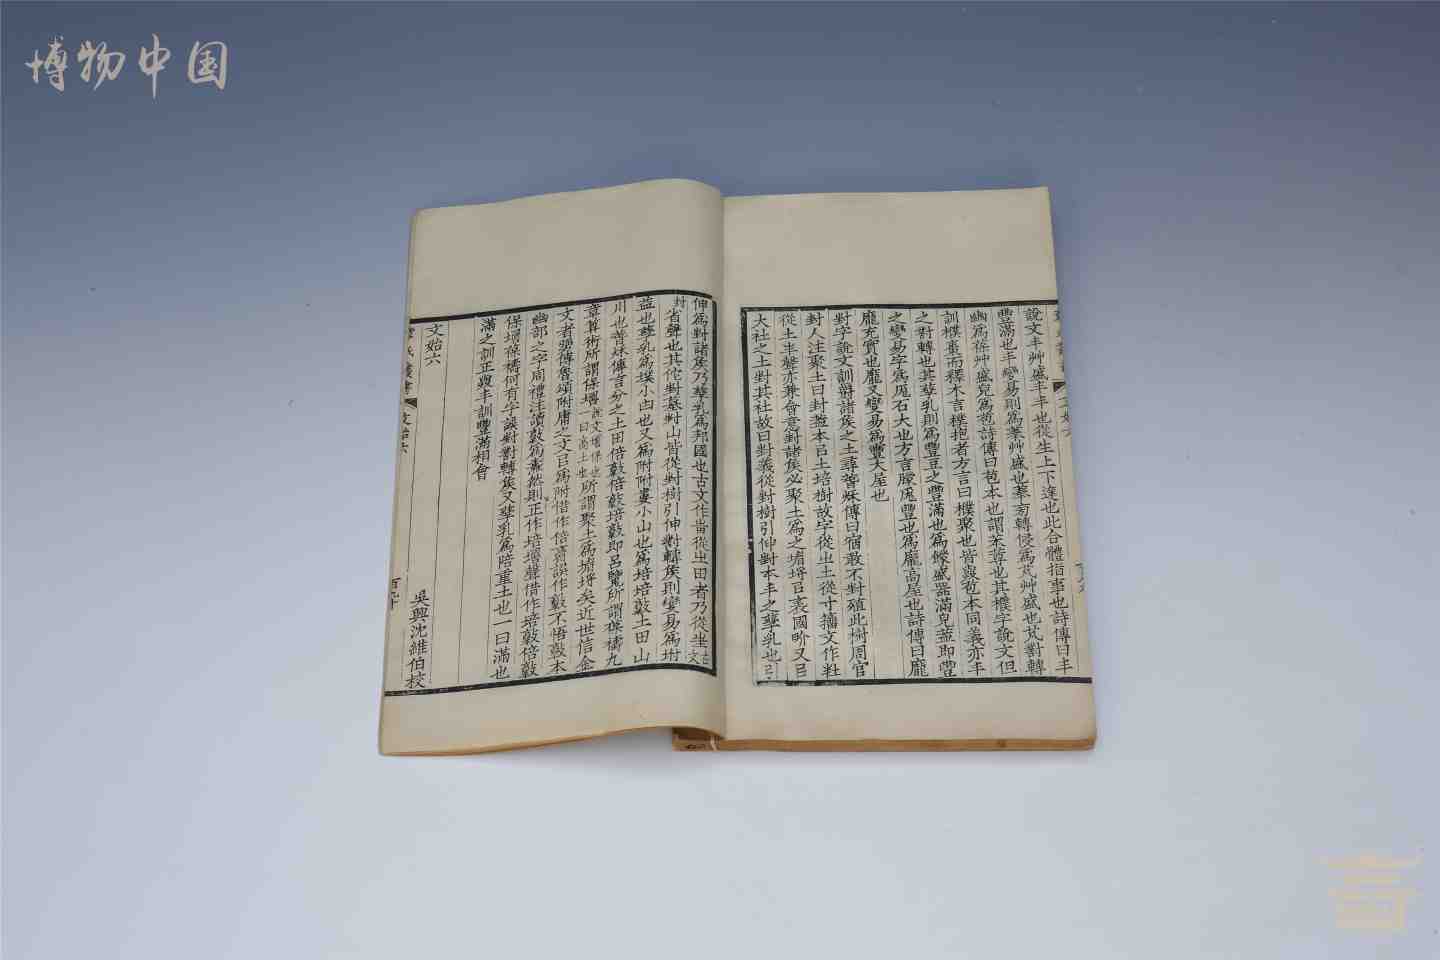 博物中国
說文丰艸盛丰丰也從生上下達也此合體指事也詩傳曰丰
豐滿也丰變易則爲菶艸盛也菶旁轉侵爲芃艸盛也芃對轉
幽爲葆艸盛皃爲苞詩傳曰苞本也謂茱蓴也其樸字說文但
訓樸棗而釋木言樸抱者方言曰樸聚也皆與苞本同義亦丰
之對轉也其孳乳則爲豐豆之豐滿也爲饛盛器滿皃蓋卽豐
之變易字爲厖石大也方言朦厖豐也爲龐高屋也詩傳曰龐
龐充實也龐又變易爲豐大屋也
對字說文訓爵諸矦之土尋春秋傳曰宿敢不封殖此樹周官
封人注聚土曰封蓋本㠯土培樹故字從㞢土從寸籒文作𡉚
從土丰聲亦兼會意封諸矦必聚土爲之堳埒㠯表國畍又㠯
大社之土封其社故曰封義從封樹引伸封本丰之孳乳也㠯
伸爲封諸矦乃孳乳爲邦國也古文作𤰫從㞢田者乃從㞷古文
封省聲也其佗封墓封山皆從封樹引伸對轉矦則變易爲坿
益也孳乳爲墣小凷也又爲附附婁小山也爲培培敦土田山
川也春秋傳言分之土田倍敦倍敦培敦卽呂覽所謂葆禱九
章算術所謂葆壔說文壔保也一曰高土也所謂聚土爲堳埒矣近世信金
文者彊傅魯頌附庸之文㠯爲附借作倍𩫏誤作敦不悟敦本
幽部之字周禮注讀敦爲燾然則正作培壔聲借作培敦倍敦
保壔葆禱何有字誤對轉矦又孳乳爲陪重土也一曰滿也
滿之訓正與丰訓豐滿相會
文始六
吳興沈維伯校
章氏叢書
文始六